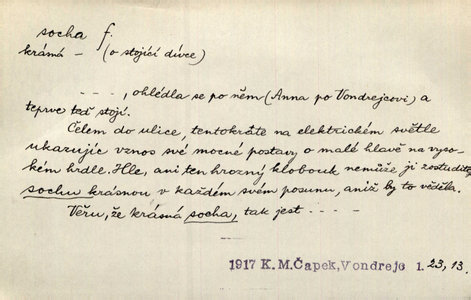 socha f.
krásná – (o stojící dívce)
– – –, ohlédla se po něm (Anna po Vondrejcovi) a
teprve teď stojí.
Čelem do ulice, tentokráte na elektrickém světle
ukazujíc vznos své mocné postavy, o malé hlavě na vyso-
kém hrdle. Hle, ani ten hrozný klobouk nemůže ji zostuditi,
sochu krásnou v každém svém posunu, aniž by to věděla.
Věru, že krásná socha, tak jest – – – –
1917 K.M.Čapek, Vondrejc 1. 23, 13.